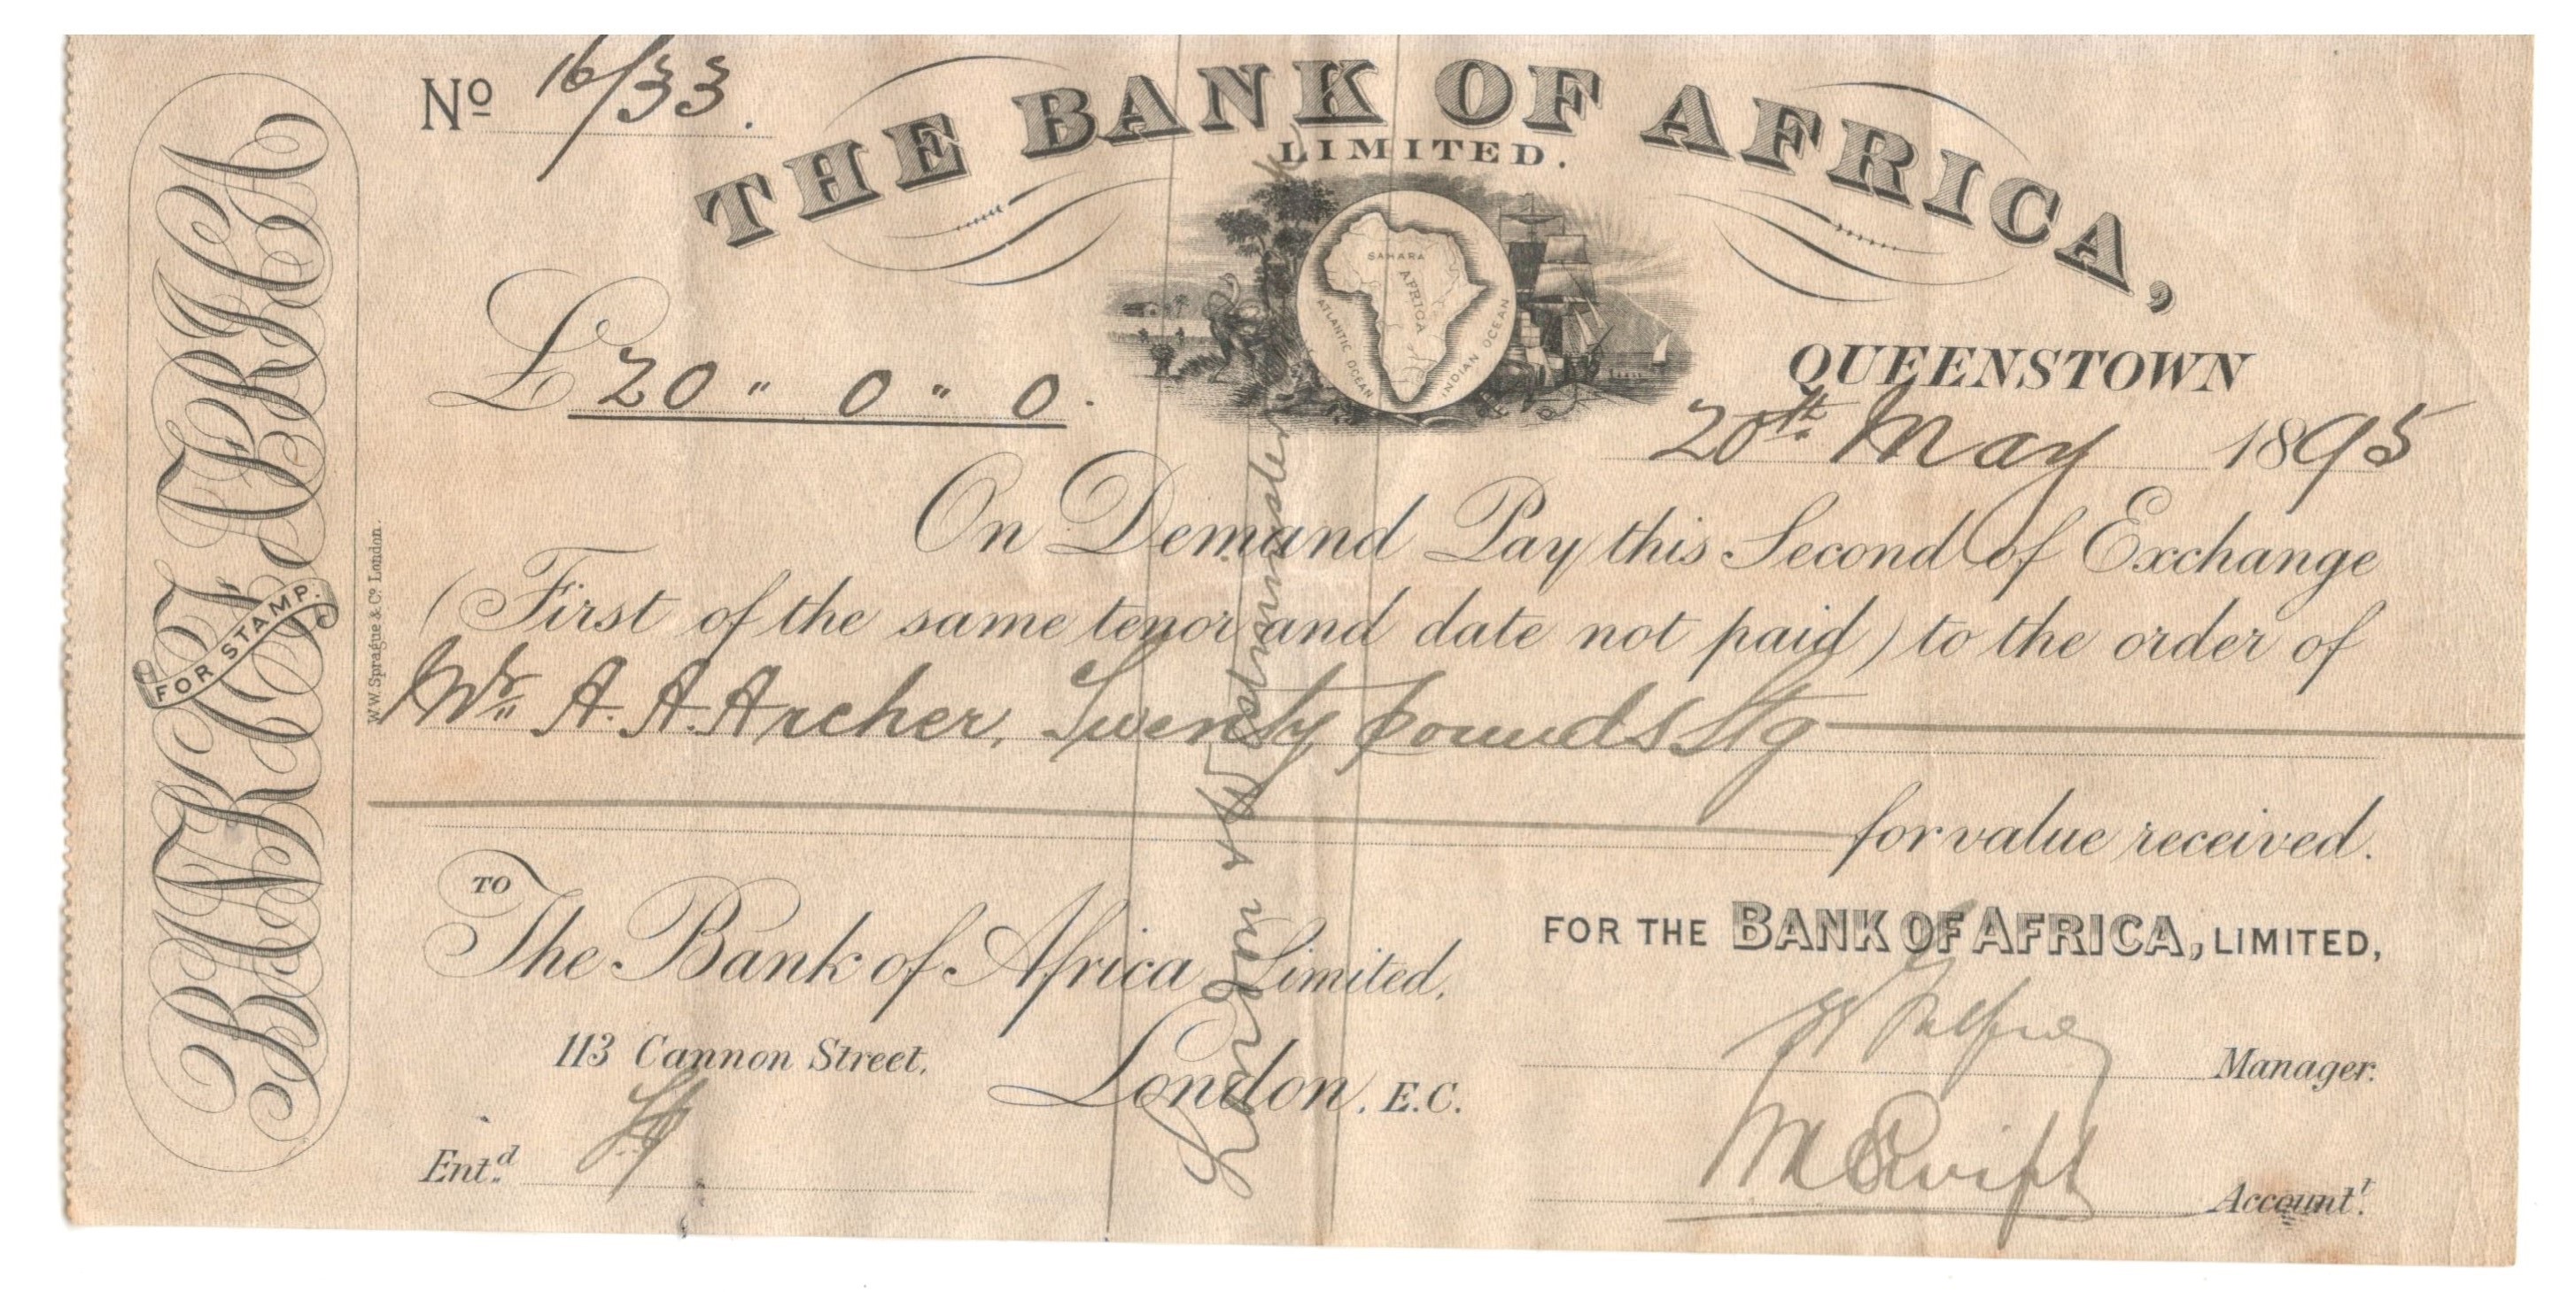 No 16/33.
THE BANK OF AFRICA,
LIMITED.
SAHARA
AFRICA
ATLANTIC OCEAN
INDIAN OCEAN
£ 20 " 0 " 0.
QUEENSTOWN
20th May 1895
On Demand Pay this Second of Exchange
(First of the same tenor and date not paid) to the order of
Mr A. A. Archer, Twenty pounds Stg
for value received.
TO
The Bank of Africa Limited,
113 Cannon Street,
London, E.C.
FOR THE BANK OF AFRICA, LIMITED,
Manager.
M Swift
Account.t
Ent.d
BANK OF AFRICA
FOR STAMP.
W.W. Sprague & Co. London.
London & Westminster